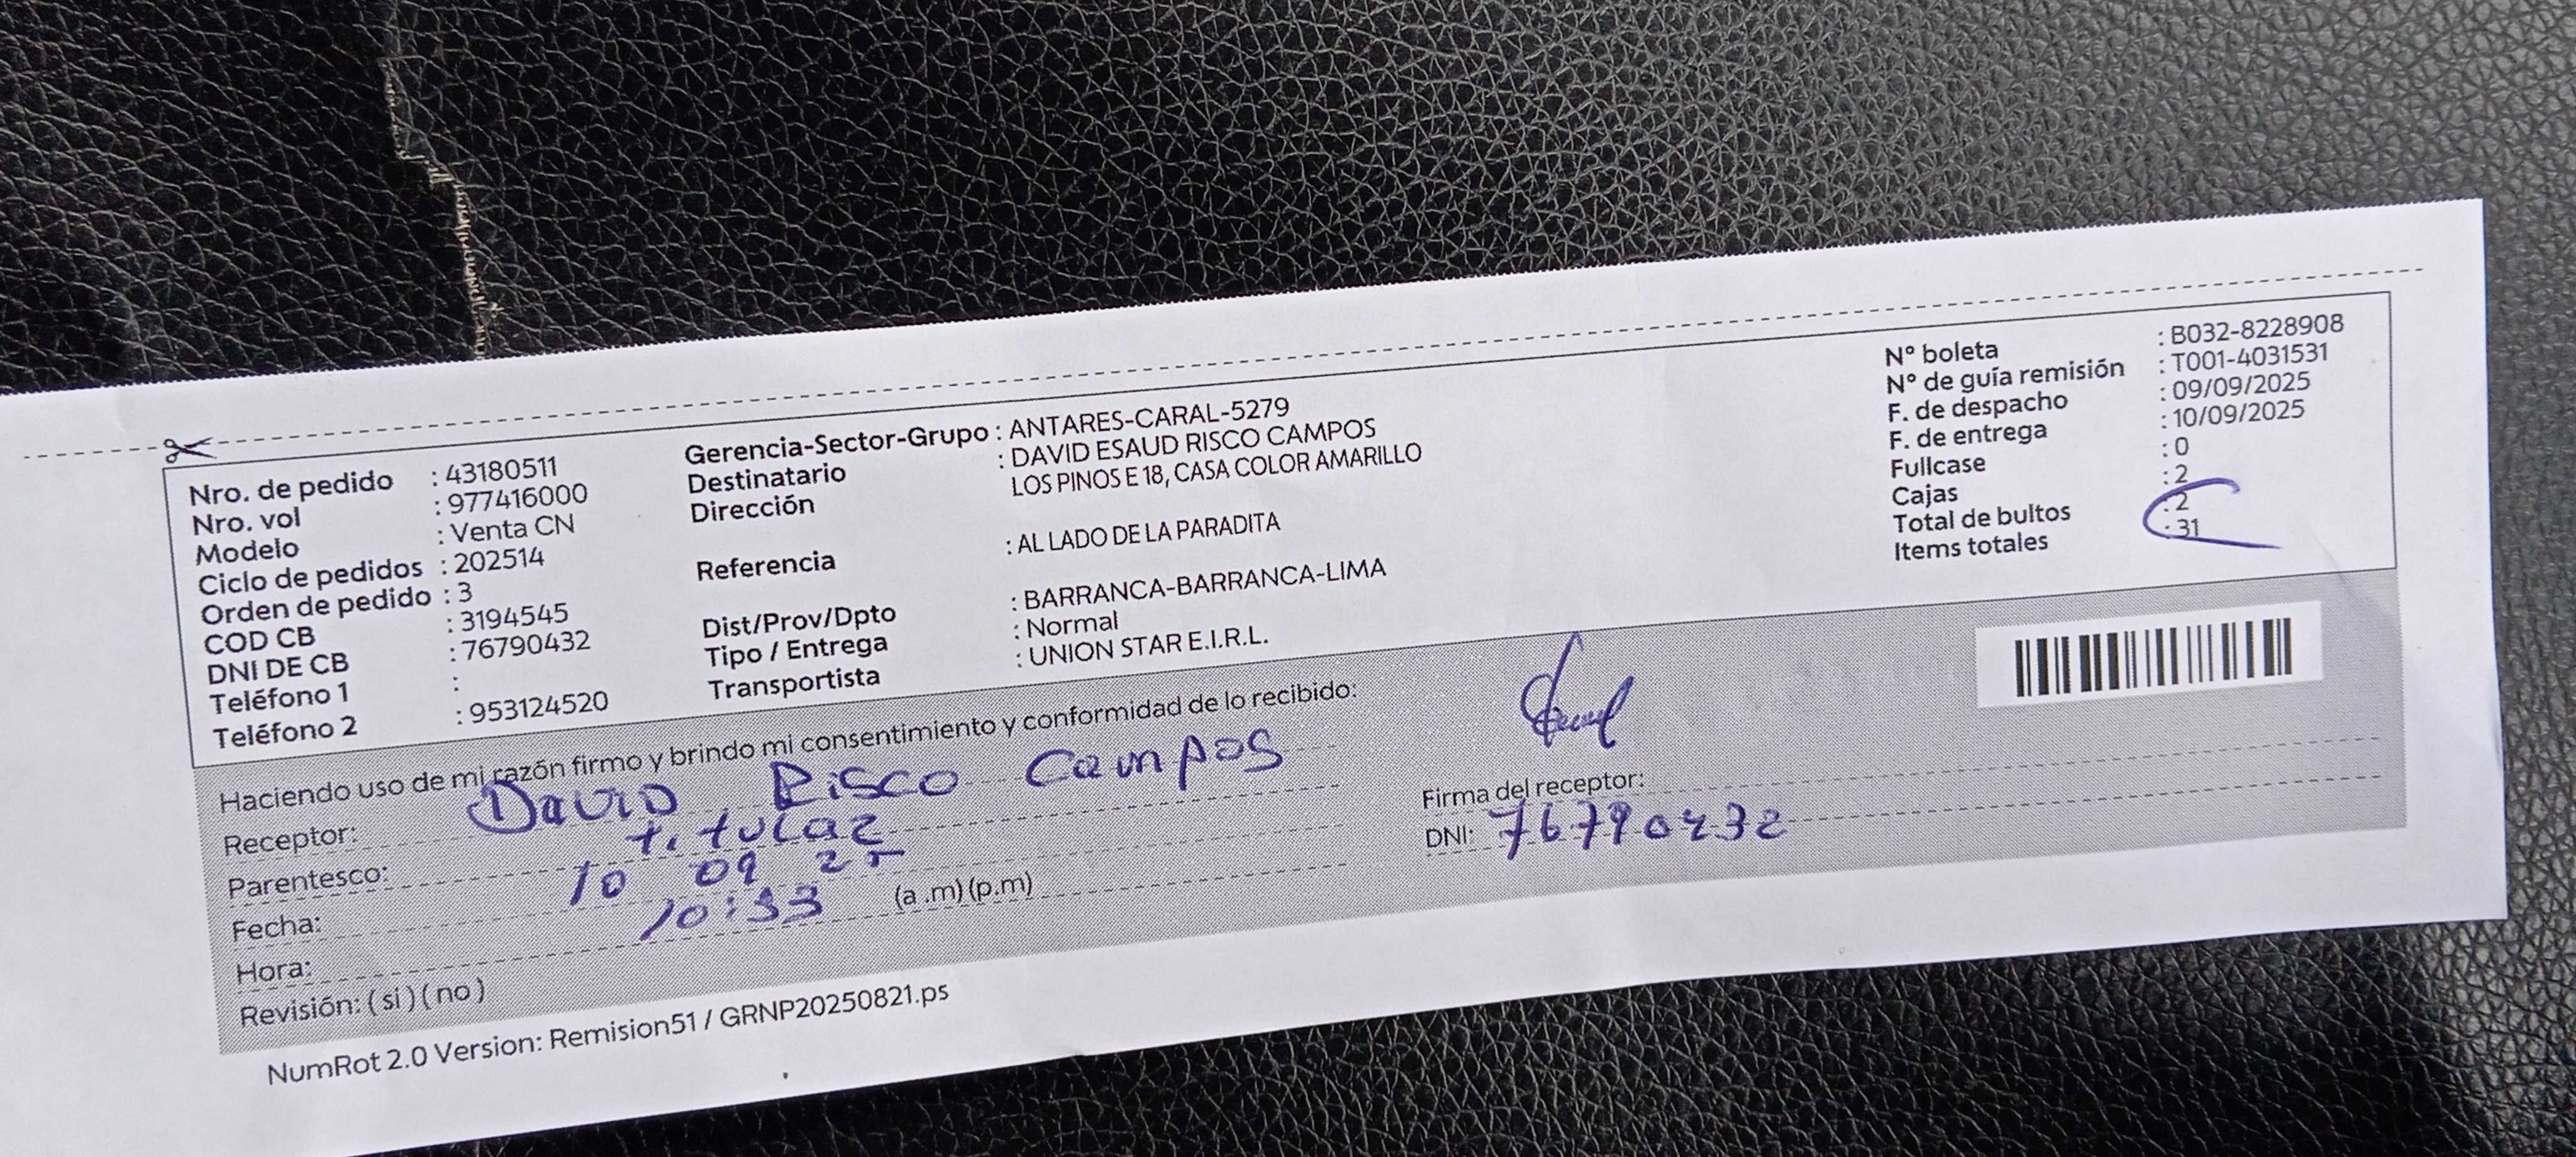 Nro. de pedido : 43180511
Nro. vol : 977416000
Modelo : Venta CN
Ciclo de pedidos : 202514
Orden de pedido : 3
COD CB : 3194545
DNI DE CB : 76790432
Teléfono 1 :
Teléfono 2 : 953124520
Gerencia-Sector-Grupo : ANTARES-CARAL-5279
Destinatario : DAVID ESAUD RISCO CAMPOS
Dirección LOS PINOS E 18, CASA COLOR AMARILLO
Referencia : AL LADO DE LA PARADITA
Dist/Prov/Dpto : BARRANCA-BARRANCA-LIMA
Tipo / Entrega : Normal
Transportista : UNION STAR E.I.R.L.
N° boleta : B032-8228908
N° de guía remisión : T001-4031531
F. de despacho : 09/09/2025
F. de entrega : 10/09/2025
Fullcase : 0
Cajas : 2
Total de bultos : 2
Items totales : 31
Haciendo uso de mi razón firmo y brindo mi consentimiento y conformidad de lo recibido:
Receptor: David Risco Campos
Parentesco: titular
Fecha: 10 09 25
Hora: 10:33 (a .m) (p.m)
Revisión: ( si ) ( no )
Firma del receptor:
DNI: 76790432
NumRot 2.0 Version: Remision51 / GRNP20250821.ps